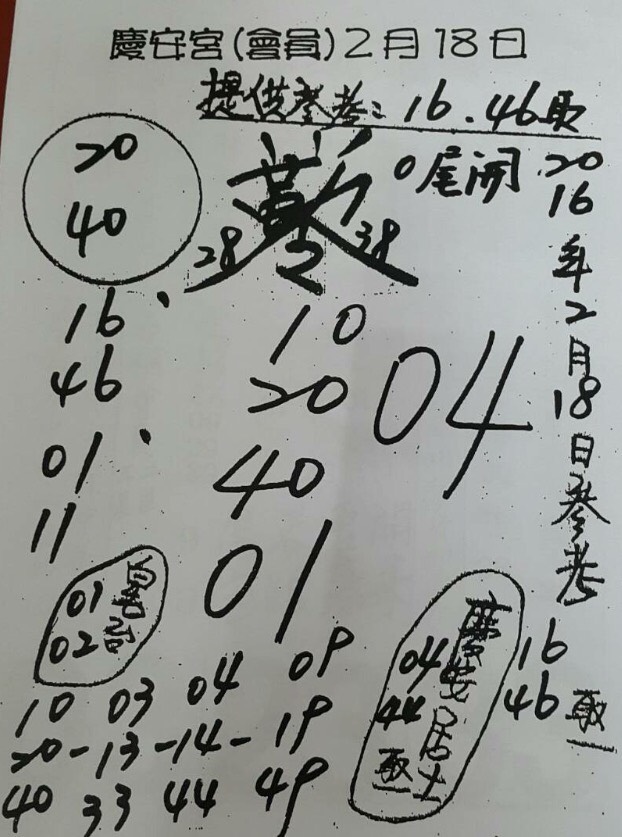 慶安宮(會員)2月18日
提供參考:16.46取
20
40
0尾開
28
38
16
46
01
11
10
20
40
01
04
2016年2月18日參考
16
46取一
01
02
10 03 04 09
20-13-14-19
40 33 44 49
慶安居士
04
44
取一